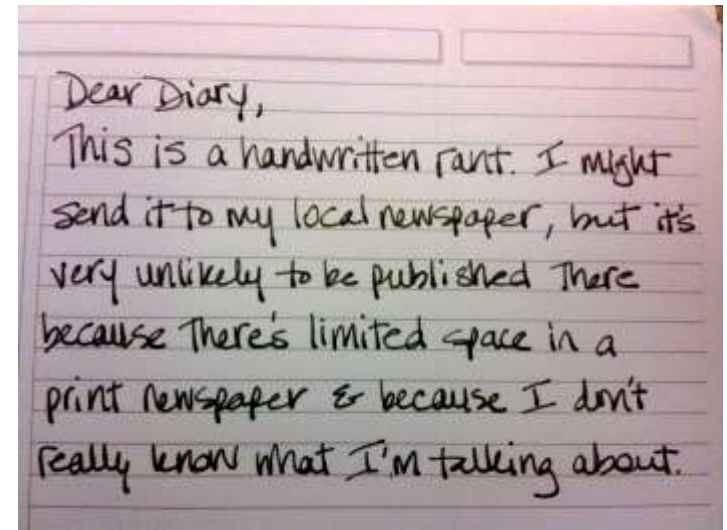 Dear Diary,
This is a handwritten rant. I might
send it to my local newspaper, but it's
very unlikely to be published there
because there's limited space in a
print newspaper & because I don't
really know what I'm talking about.